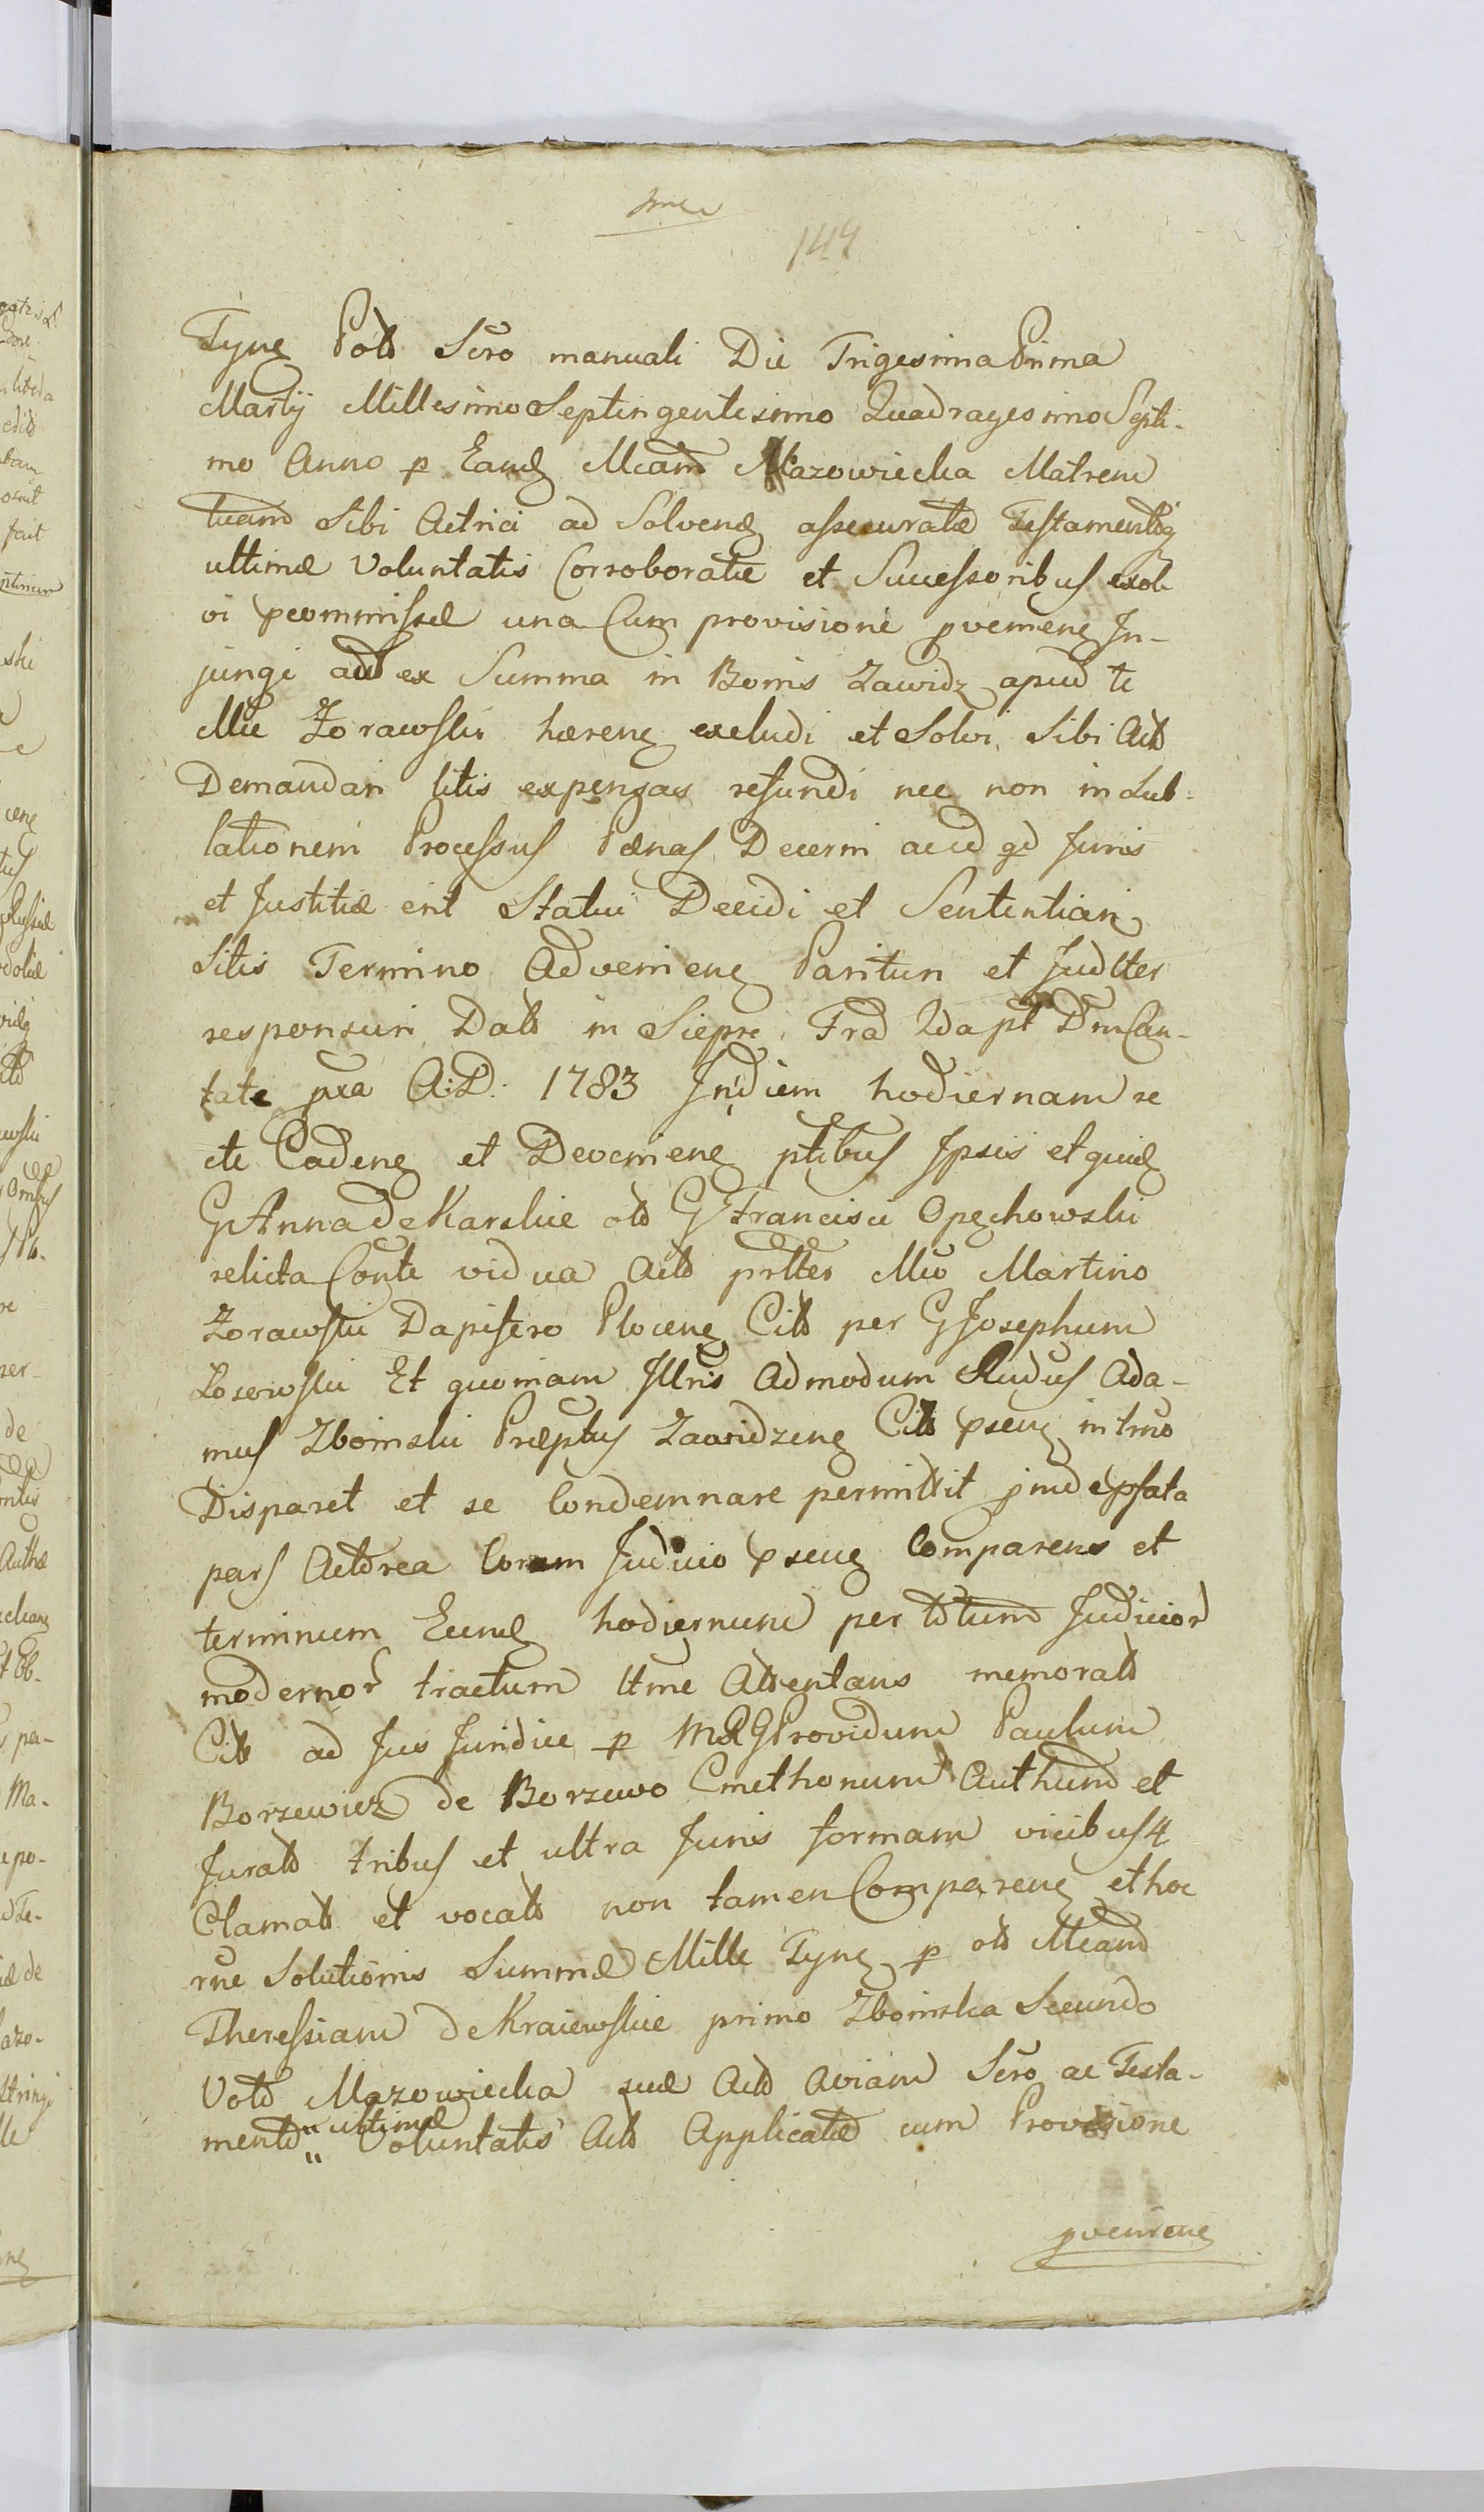 147
Tyne Polt Scro manuali Die Trigesima Prima
Martij Millesimo Septingentesimo Quadragesimo Septi-
mo Anno p Eand Mcam Mazowiecka Matrem
tuam Sibi Actrici ad Solvend assecuratæ Testamentoq
ultimæ Voluntatis Corroboratæ et Successoribus exol
vi peommissæ una Cum provisione pvemene In-
jungi aut ex Summa in Bonis Zawidz apud te
Mce Żorawski hærene excludi et Solvi Sibi Act
Demandari litis expensas refundi nec non in Sub-
lationem Processus Pœnas Decerni ac id qd Juris
et Justitiæ erit Statui Decidi et Sententiari
Sitis Termino Adveniene Parituri et Judtter
responsuri Dat in Sieprc Fra Dnica Can-
tate pxa A:D: 1783 In diem hodiernam re
cte Cadene et Deveniene ptibus Ipsis et quid
G Anna de Karskie olt G Francisci Opęchowski
relicta Conte vidua Act prltter Mco Martino
Żorawski Dapifero Plocene Cit per G Josephum
Łosewski Et quoniam Illris Admodum Rndus Ada-
mus Zboinski Præptus Zawidzene Cit psene in tmo
Disparet et se Condemnare permittit pinde psata
pars Actorea Coram Judicio psene Comparens et
terminum Eund hodiernum per totum Judicior
modernor tractum ltme Attentans memorat
Cit ad Jus Juridice p Providum Paulum
Borzewicz de Borzewo Cmethonum Authum et
Jurat tribus et ultra Juris formam vicibus 4
Clamat et vocat non tamen Comparene et hoc
rne Solutionis Summæ Mille Tyne p olt Mcam
Theressiam de Kraiewskie primo Zboinska Secundo
Voto Mazowiecka suæ Act Aviam Scro ac Testa-
mento ultimæ Voluntatis Act Applicatæ cum Provisione
pveniene